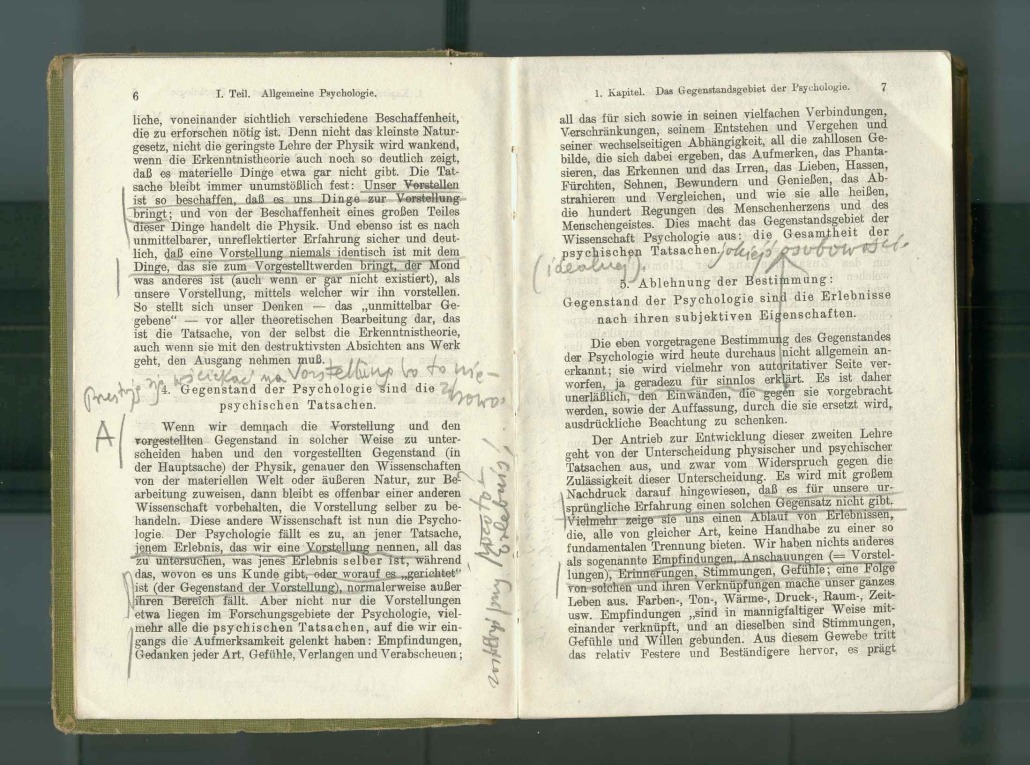 6 I. Teil. Allgemeine Psychologie.
liche, voneinander sichtlich verschiedene Beschaffenheit,
die zu erforschen nötig ist. Denn nicht das kleinste Natur-
gesetz, nicht die geringste Lehre der Physik wird wankend,
wenn die Erkenntnistheorie auch noch so deutlich zeigt,
daß es materielle Dinge etwa gar nicht gibt. Die Tat-
sache bleibt immer unumstößlich fest: Unser Vorstellen
ist so beschaffen, daß es uns Dinge zur Vorstellung
bringt; und von der Beschaffenheit eines großen Teiles
dieser Dinge handelt die Physik. Und ebenso ist es nach
unmittelbarer, unreflektierter Erfahrung sicher und deut-
lich, daß eine Vorstellung niemals identisch ist mit dem
Dinge, das sie zum Vorgestelltwerden bringt, der Mond
was anderes ist (auch wenn er gar nicht existiert), als
unsere Vorstellung, mittels welcher wir ihn vorstellen.
So stellt sich unser Denken — das „unmittelbar Ge-
gebene“ — vor aller theoretischen Bearbeitung dar, das
ist die Tatsache, von der selbst die Erkenntnistheorie,
auch wenn sie mit den destruktivsten Absichten ans Werk
geht, den Ausgang nehmen muß.
na Vorstellung bo to nie-
4. Gegenstand der Psychologie sind die
psychischen Tatsachen.
A
Wenn wir demnach die Vorstellung und den
vorgestellten Gegenstand in solcher Weise zu unter-
scheiden haben und den vorgestellten Gegenstand (in
der Hauptsache) der Physik, genauer den Wissenschaften
von der materiellen Welt oder äußeren Natur, zur Be-
arbeitung zuweisen, dann bleibt es offenbar einer anderen
Wissenschaft vorbehalten, die Vorstellung selber zu be-
handeln. Diese andere Wissenschaft ist nun die Psycho-
logie. Der Psychologie fällt es zu, an jener Tatsache,
jenem Erlebnis, das wir eine Vorstellung nennen, all das
zu untersuchen, was jenes Erlebnis selber ist, während
das, wovon es uns Kunde gibt, oder worauf es „gerichtet“
ist (der Gegenstand der Vorstellung), normalerweise außer
ihren Bereich fällt. Aber nicht nur die Vorstellungen
etwa liegen im Forschungsgebiete der Psychologie, viel-
mehr alle die psychischen Tatsachen, auf die wir ein-
gangs die Aufmerksamkeit gelenkt haben: Empfindungen,
Gedanken jeder Art, Gefühle, Verlangen und Verabscheuen;
1. Kapitel. Das Gegenstandsgebiet der Psychologie. 7
all das für sich sowie in seinen vielfachen Verbindungen,
Verschränkungen, seinem Entstehen und Vergehen und
seiner wechselseitigen Abhängigkeit, all die zahllosen Ge-
bilde, die sich dabei ergeben, das Aufmerken, das Phanta-
sieren, das Erkennen und das Irren, das Lieben, Hassen,
Fürchten, Sehnen, Bewundern und Genießen, das Ab-
strahieren und Vergleichen, und wie sie alle heißen,
die hundert Regungen des Menschenherzens und des
Menschengeistes. Dies macht das Gegenstandsgebiet der
Wissenschaft Psychologie aus: die Gesamtheit der
psychischen Tatsachen. jakiejś osobowości.
(idealnej).
5. Ablehnung der Bestimmung:
Gegenstand der Psychologie sind die Erlebnisse
nach ihren subjektiven Eigenschaften.
Die eben vorgetragene Bestimmung des Gegenstandes
der Psychologie wird heute durchaus nicht allgemein an-
erkannt; sie wird vielmehr von autoritativer Seite ver-
worfen, ja geradezu für sinnlos erklärt. Es ist daher
unerläßlich, den Einwänden, die gegen sie vorgebracht
werden, sowie der Auffassung, durch die sie ersetzt wird,
ausdrückliche Beachtung zu schenken.
Der Antrieb zur Entwicklung dieser zweiten Lehre
geht von der Unterscheidung physischer und psychischer
Tatsachen aus, und zwar vom Widerspruch gegen die
Zulässigkeit dieser Unterscheidung. Es wird mit großem
Nachdruck darauf hingewiesen, daß es für unsere ur-
sprüngliche Erfahrung einen solchen Gegensatz nicht gibt.
Vielmehr zeige sie uns einen Ablauf von Erlebnissen,
die, alle von gleicher Art, keine Handhabe zu einer so
fundamentalen Trennung bieten. Wir haben nichts anderes
als sogenannte Empfindungen, Anschauungen (= Vorstel-
lungen), Erinnerungen, Stimmungen, Gefühle; eine Folge
von solchen und ihren Verknüpfungen mache unser ganzes
Leben aus. Farben-, Ton-, Wärme-, Druck-, Raum-, Zeit-
usw. Empfindungen „sind in mannigfaltiger Weise mit-
einander verknüpft, und an dieselben sind Stimmungen,
Gefühle und Willen gebunden. Aus diesem Gewebe tritt
das relativ Festere und Beständigere hervor, es prägt